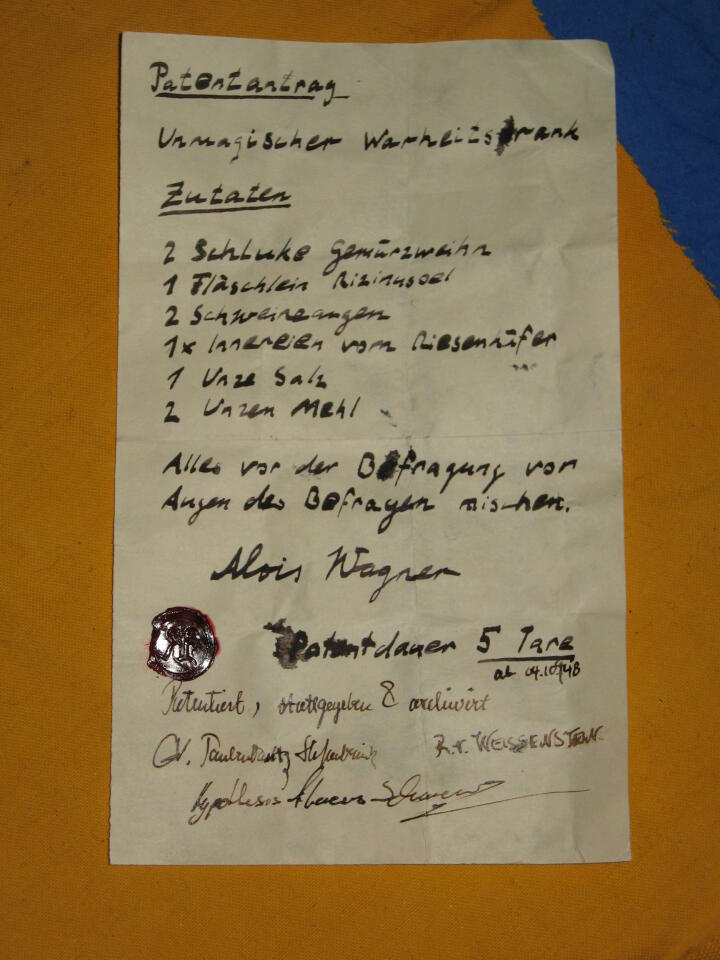 Patentantrag
Unmagischer Warheitstrank
Zutaten
2 Schluke Gemürzweihn
1 Fläschlein Rizinusoel
2 Schweineaugen
1x Innereien vom Riesenkäfer
1 Unze Salz
2 Unzen Mehl
Alles vor der Befragung vor
Augen des Befragen mischen.
Alois Wagner
Patentdauer 5 Tare
ab
Patentiert, stattgegeben & archiviert
R.v. WEISSENSTEIN
Hypothesis Abacus